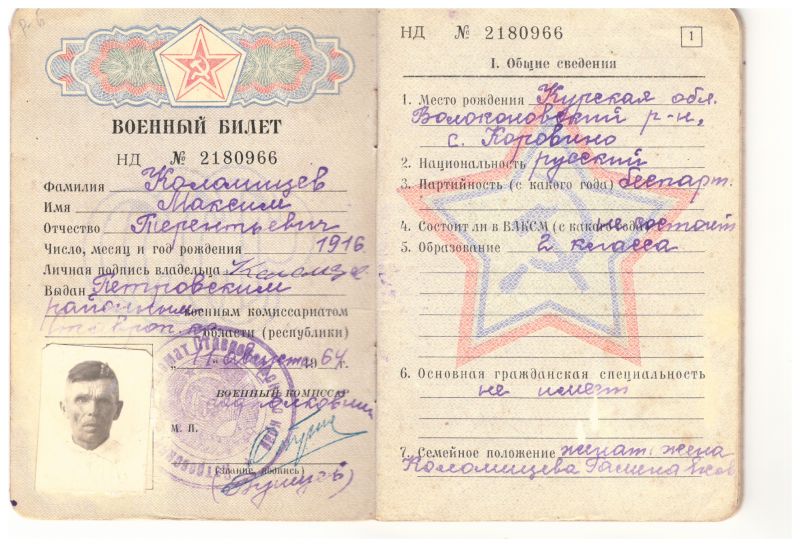 ВОЕННЫЙ БИЛЕТ
НД № 2180966
Фамилия Коломицев
Имя Максим
Отчество Терентьевич
Число, месяц и год рождения 1916
Личная подпись владельца
Выдан Петровским
районным военным комиссариатом
области (республики)
"11" августа 1964 г.
ВОЕННЫЙ КОМИССАР
подполковник
М. П.
(звание, подпись)
НД № 2180966
1
I. Общие сведения
1. Место рождения Курская обл.
Волоконовский р-н,
с. Коровино
2. Национальность русский
3. Партийность (с какого года) беспарт.
4. Состоит ли в ВЛКСМ (с какого года) не состоит
5. Образование 2 класса
6. Основная гражданская специальность
не имеет
7. Семейное положение женат: жена
Коломицева